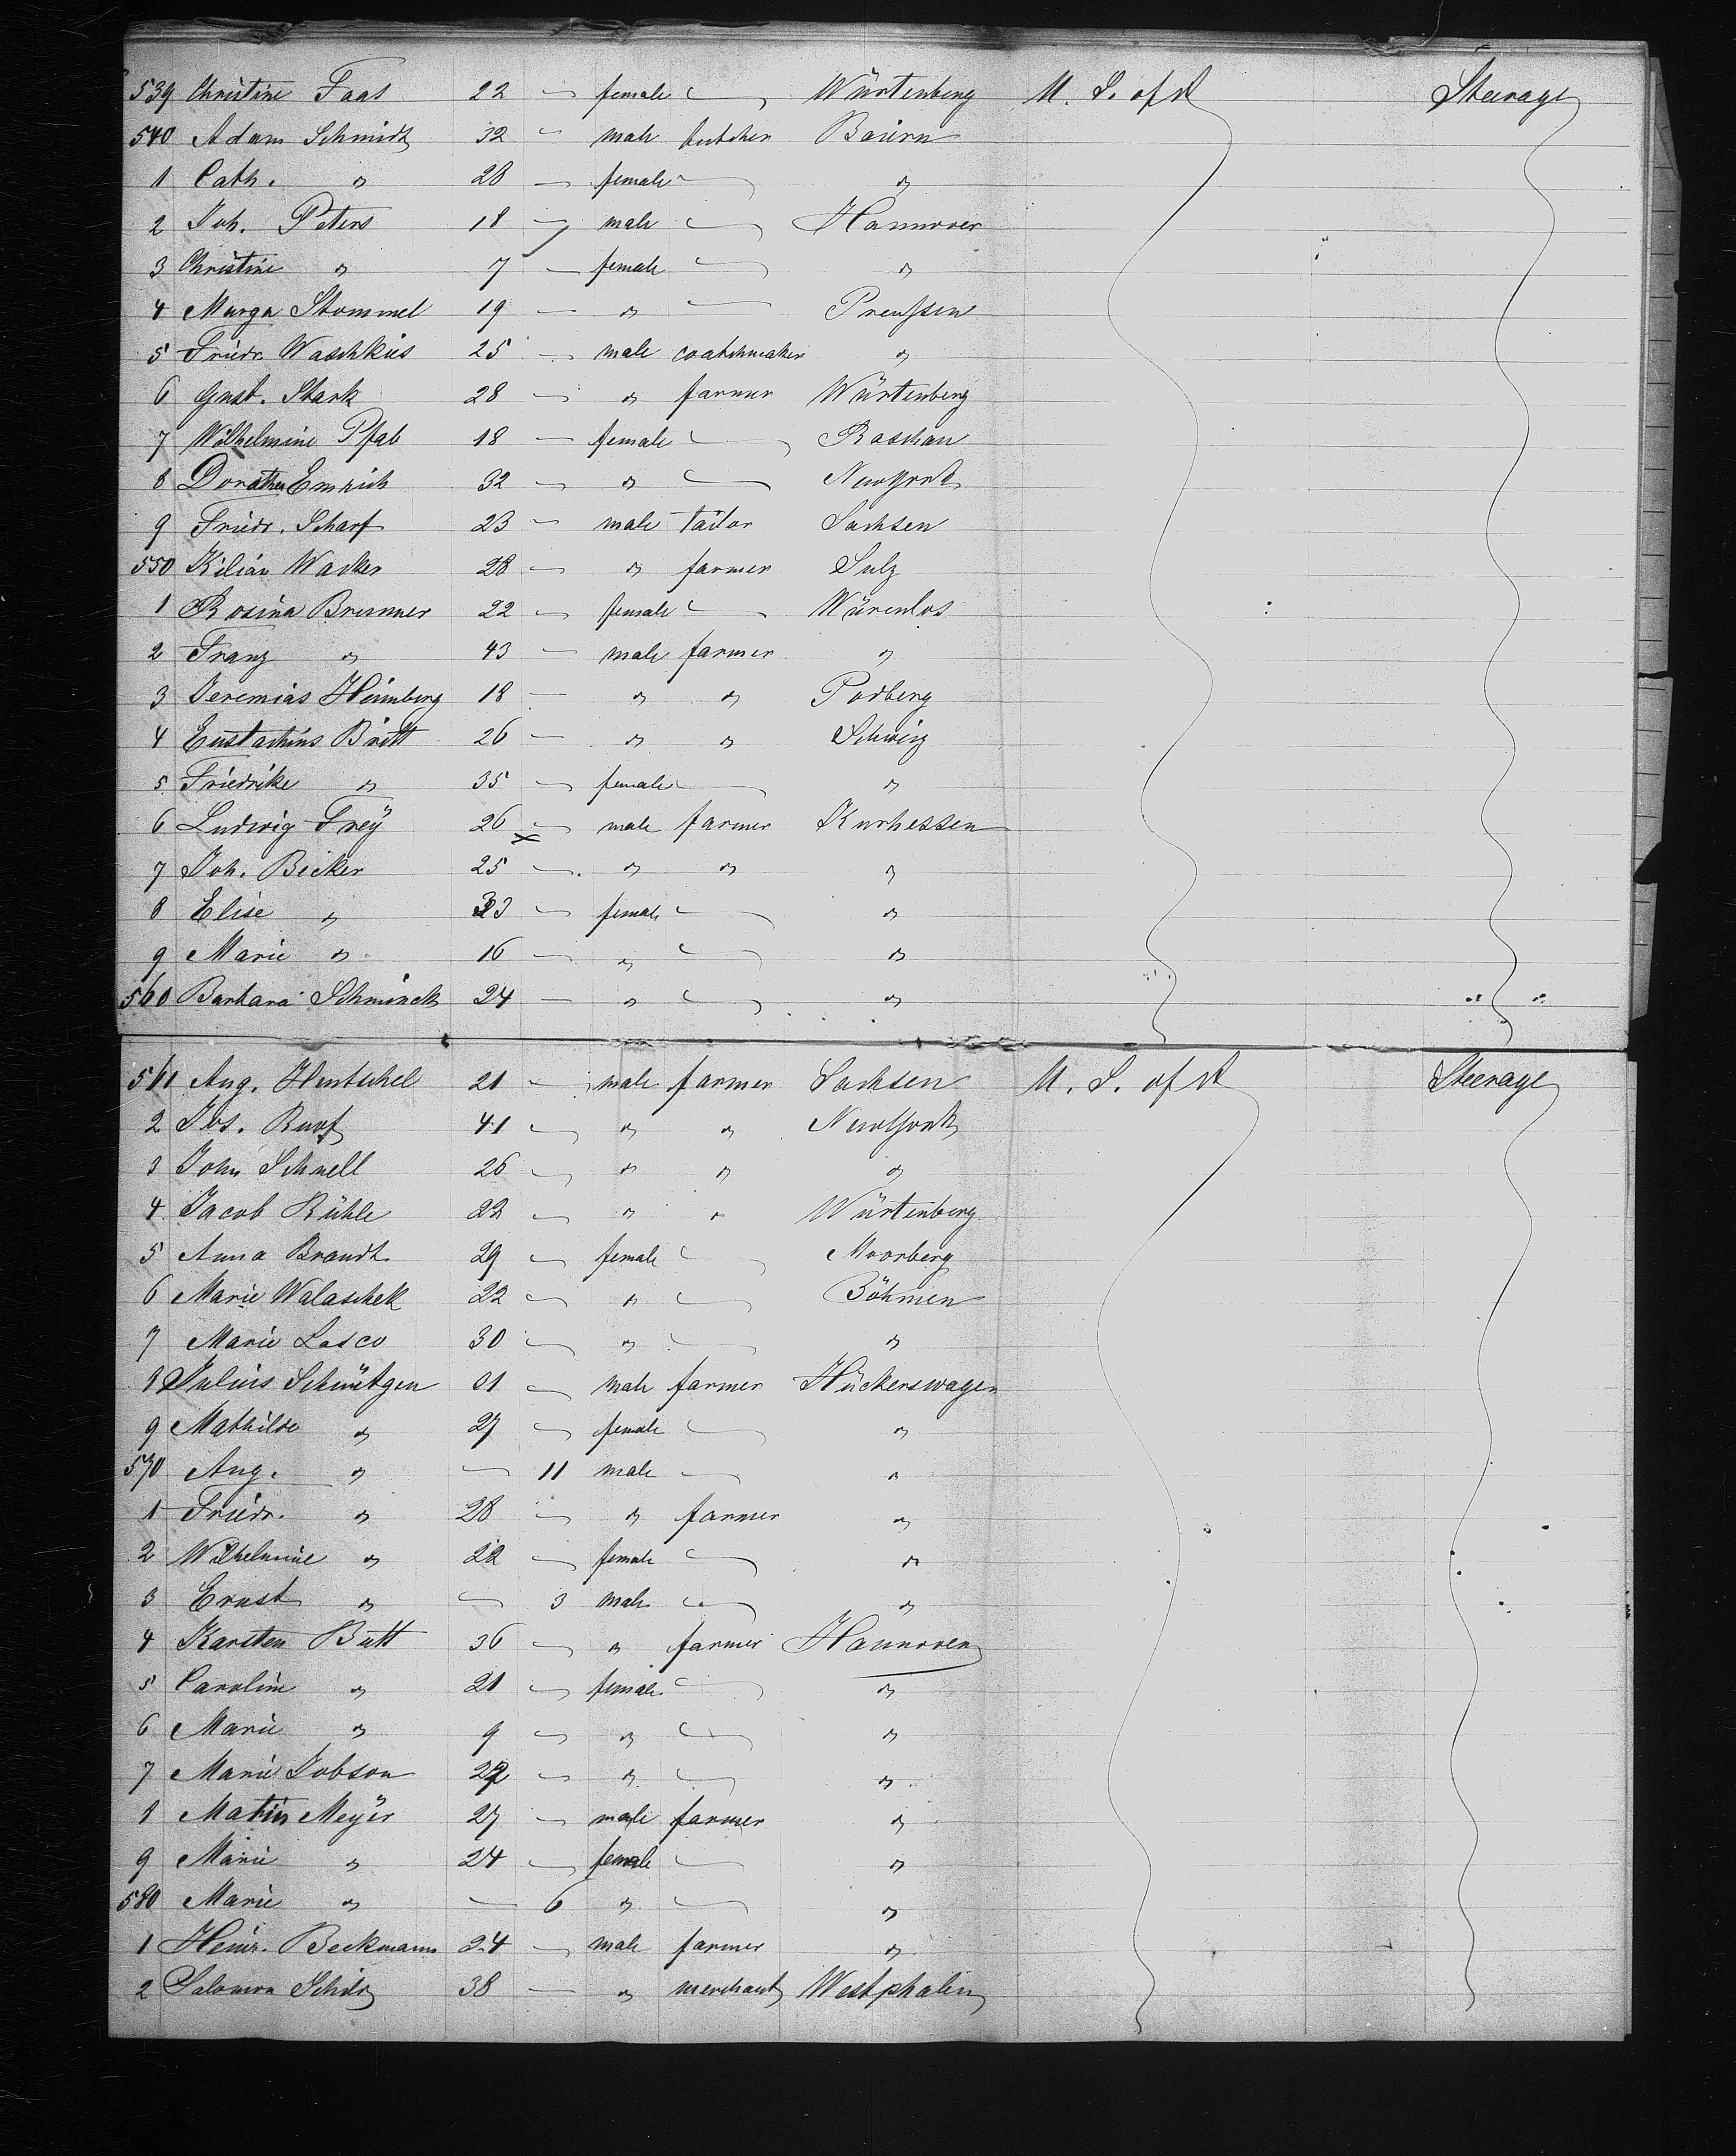 539 Christine Faas 22 — female — Würtenberg U. S. of A Steerage
540 Adam Schmidt 32 " male butcher Baiern
1 Cath. " 28 — female — "
2 Joh. Peters 18 — male — Hannover
3 Christine " 7 — female — "
4 Marga Stommel 19 — " — Preußen
5 Friedr. Waschkies 25 — male coatchmaker "
6 Gust. Stark 28 — " farmer Würtenberg
7 Wilhelmine Pfab 18 — female — Raschau
8 Dorathea Emrich 32 — " — NewYork
9 Friedr. Scharf 23 — male tailor Sachsen
550 Kilian Wacker 28 — " farmer Sulz
1 Rosina Brunner 22 — female — Würenlos
2 Franz " 43 — male farmer "
3 Jeremias Heimberg 18 — " " Podberg
4 Eustachius Britt 26 — " " Schwiz
5 Friedrike " 35 — female — "
6 Ludwig Frey 26 — male farmer Kurhessen
7 Joh. Bicker 25 — " " "
8 Elise " 33 — female — "
9 Marie " 16 — " — "
560 Barbara Schminck 24 — " — "
561 Aug. Hentschel 21 — male farmer Sachsen U. S. of A Steerage
2 Jos. Ruof 41 — " " NewYork
3 John Schnell 26 — " " "
4 Jacob Kühle 22 — " " Würtenberg
5 Anna Brandt 29 — female — Moorberg
6 Marie Walaschek 22 — " — Böhmen
7 Marie Lasco 30 — " — "
8 Julius Schmitgen 01 — male farmer Hückerswagen
9 Mathilde " 27 — female — "
570 Aug. " — 11 male — "
1 Friedr. " 28 — " farmer "
2 Wilhelmine " 22 — female — "
3 Ernst " — 3 male — "
4 Karsten Butt 36 — " farmer Hannover
5 Carolin " 21 — female — "
6 Marie " 9 — " — "
7 Marie Jobson 22 — " — "
8 Matin Meyer 27 — male farmer "
9 Marie " 24 — female — "
580 Marie " — 6 " — "
1 Heinr. Beckmann 24 — male farmer "
2 Salomon 38 — " merchant Westphalen